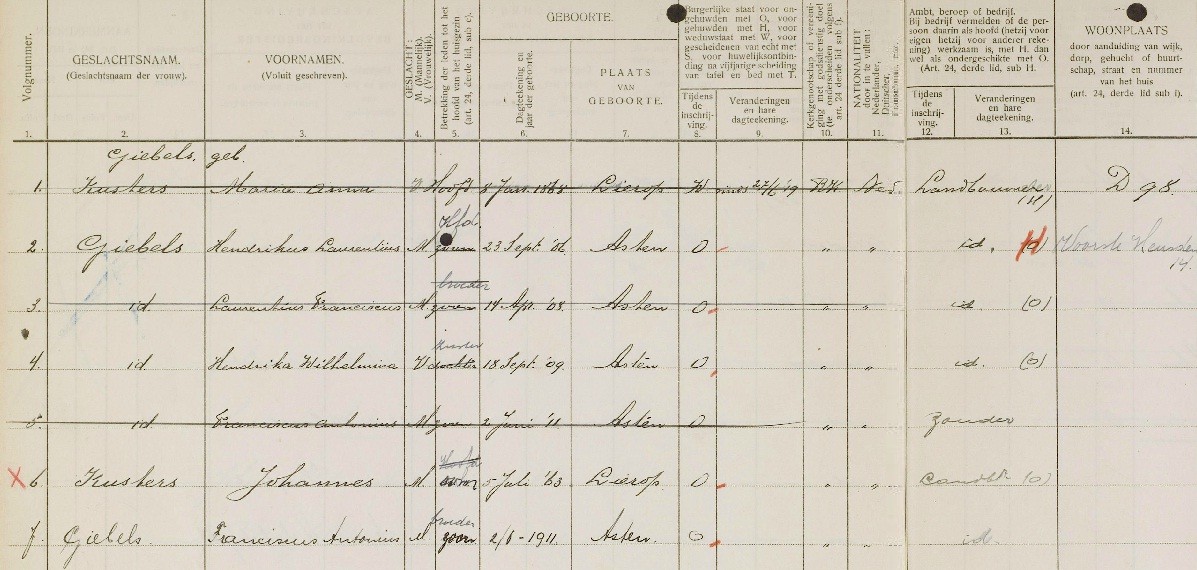 Volgnummer.
GESLACHTSNAAM.
(Geslachtsnaam der vrouw).
VOORNAMEN.
(Voluit geschreven).
GESLACHT:
M. (Mannelijk).
V. (Vrouwelijk).
Betrekking der leden tot het
hoofd van het huisgezin
(art. 24, derde lid, sub c).
GEBOORTE.
Dagteekening en
jaar der geboorte.
PLAATS
VAN
GEBOORTE.
Burgerlijke staat voor on-
gehuwden met O, voor
gehuwden met H, voor
weduwstaat met W, voor
gescheidenen van echt met
S, voor huwelijksontbin-
ding na vijfjarige scheiding
van tafel en bed met T.
Tijdens
de
inschrij-
ving.
Veranderingen
en hare
dagteekening.
Kerkgenootschap of vereeni-
ging met godsdienstig doel
(te onderscheiden volgens
art. 24 derde lid sub f).
NATIONALITEIT
door in te vullen:
Nederlander,
Duitscher,
Franschman, enz.
Ambt, beroep of bedrijf.
Bij bedrijf vermelden of de per-
soon daarin als hoofd (hetzij voor
eigen hetzij voor anderer reke-
ning) werkzaam is, met H. dan
wel als ondergeschikte met O.
(Art. 24, derde lid, sub H.
Tijdens
de
inschrij-
ving.
Veranderingen
en hare
dagteekening.
WOONPLAATS
door aanduiding van wijk,
dorp, gehucht of buurt-
schap, straat en nummer
van het huis
(art. 24, derde lid sub i).
1. 2. 3. 4. 5. 6. 7. 8. 9. 10. 11. 12. 13. 14.
Giebels, geb.
1. Kusters Maria Anna V Hoofd 8 Jan. 1868 Lierop W 27/6 '19 RK Ned. Landbouwster (H) D 98.
Hfd.
2. Giebels Hendrikus Laurentius M zoon 23 Sept. '06 Asten O " " id. H Voorste Heusden
14.
broeder
3. id. Laurentius Franciscus M zoon 14 Ap. '08 Asten O " " id (O)
zuster
4. id. Hendrika Wilhelmina V dochter 18 Sept. '09. Asten O " " id. (O)
5. id Franciscus Antonius M zoon 2 Juni '11 Asten O " " Zonder
Hoofd
X 6. Kusters Johannes M. oom 5 Juli '63 Lierop O " " Landb. (O)
broeder
7. Giebels. Franciscus Antonius M zoon 2/6 - 1911. Asten. O " " id.